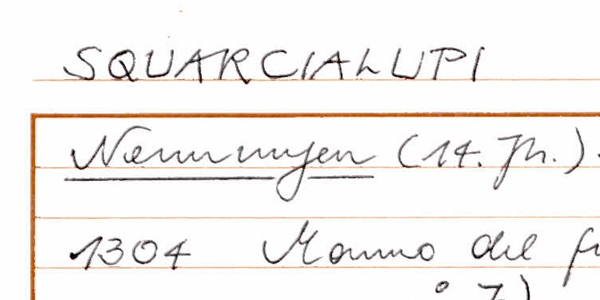 SQUARCIALUPI
Nennungen (14. Jh.)
1304 Manno del